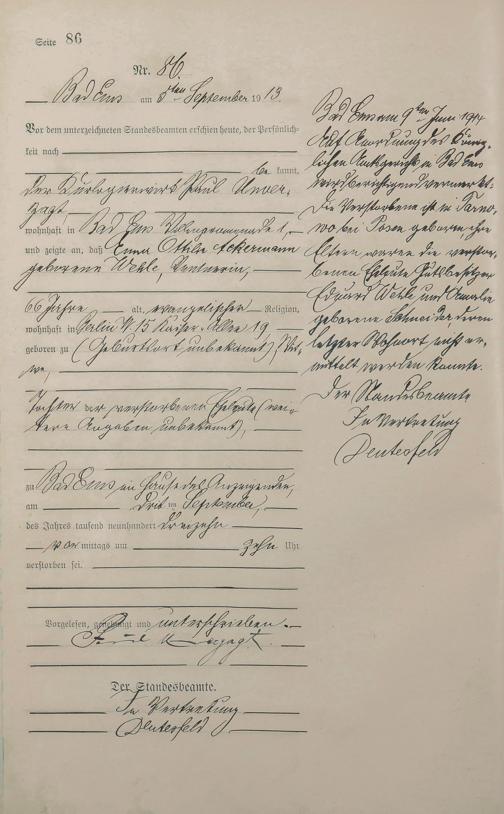 Seite 86
Nr. 86.
Bad Ems am 5ten September 1913.
Vor dem unterzeichneten Standesbeamten erschien heute, der Persönlich-
keit nach
be kannt,
der Kurlogierwirt Paul Unver-
zagt
wohnhaft in Bad Ems 1,
und zeigte an, daß Emma Ottilie Ackermann
geborene Wehle, Rentnerin,
66 Jahre alt, evangelischer Religion,
wohnhaft in Berlin W 15 Kaiser Allee 19
geboren zu (Geburtsort unbekannt), Wit-
we,
Tochter der verstorbenen Eheleute (wei-
tere Angaben unbekannt),
zu Bad Ems im Hause des Anzeigenden,
am drit ten September,
des Jahres tausend neunhundert dreizehn
vor mittags um zehn Uhr
verstorben sei.
Vorgelesen, genehmigt und unterschrieben.
Paul Unverzagt.
Der Standesbeamte.
In Vertretung
Bad Ems am 9ten Juni 1914
Auf Anordnung des König-
lichen Amtsgerichts in Bad Ems
wird berichtigend vermerkt:
Die Verstorbene ist in
wo bei Posen geboren ihre
Eltern waren die verstor-
benen Eheleute Gutsbesitzer
Eduard Wehle und Amalie
geborene Schneider, deren
letzter Wohnort nicht er-
mittelt werden konnte.
Der Standesbeamte
In Vertretung